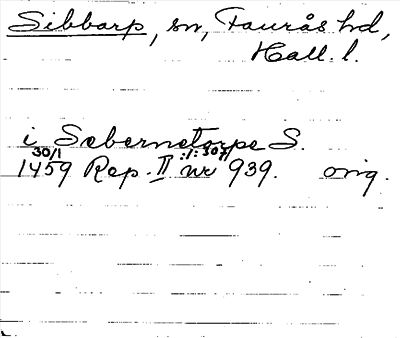 Sibbarp, sn, Faurås hd,
Hall. l.
i Sebernetorpe S.
30/1 :/: 307
1459 Rep. II nr 939. orig.